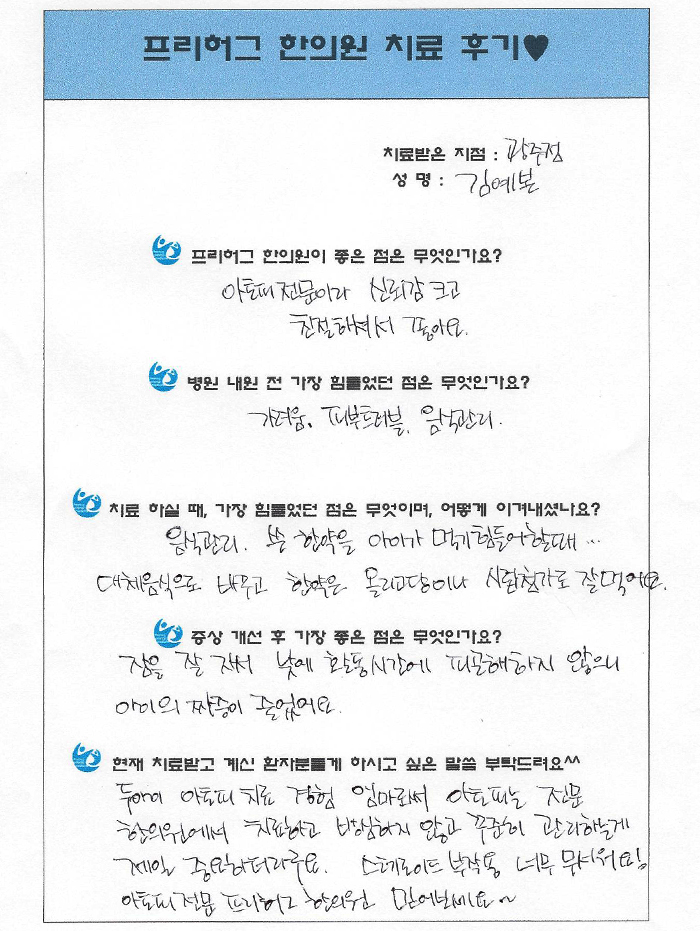 프리허그 한의원 치료 후기♥
치료받은 지점 : 광주점
성 명 : 김예본
프리허그 한의원이 좋은 점은 무엇인가요?
아토피전문이라 신뢰감 크고
친절하셔서 좋아요.
병원 내원 전 가장 힘들었던 점은 무엇인가요?
가려움. 피부트러블, 음식관리.
치료 하실 때, 가장 힘들었던 점은 무엇이며, 어떻게 이겨내셨나요?
음식관리. 쓴 한약을 아이가 먹기힘들어할때...
대체음식으로 바꾸고 한약은 올리고당이나 시럽첨가로 잘먹어요.
증상 개선 후 가장 좋은 점은 무엇인가요?
잠을 잘 자서 낮에 활동시간에 피곤해하지 않으니
아이의 짜증이 줄었어요.
현재 치료받고 계신 환자분들게 하시고 싶은 말씀 부탁드려요^^
두아이 아토피치료 경험 엄마로써 아토피는 전문
한의원에서 치료하고 방심하지 않고 꾸준히 관리하는게
제일 중요하더라구요. 스테로이드 부작용 너무 무서워요!
아토피전문 프리허그 한의원 믿어보세요~